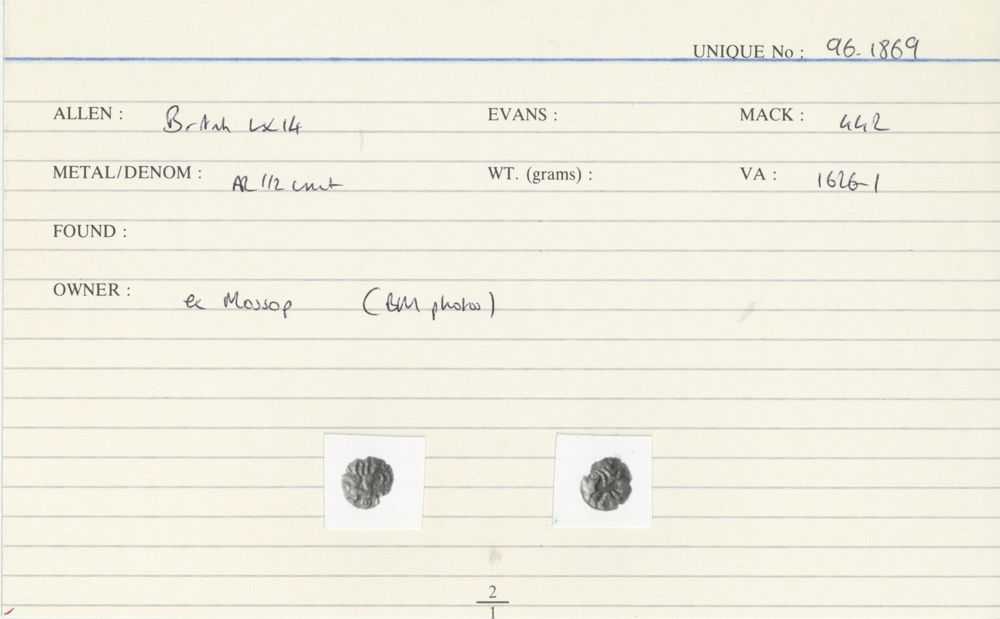 UNIQUE No : 96-1869
ALLEN : British LX14 EVANS : MACK : 442
METAL/DENOM : AR 1/2 unit WT. (grams) : VA : 1626-1
FOUND :
OWNER : ex Mossop (BM photos)
2
1